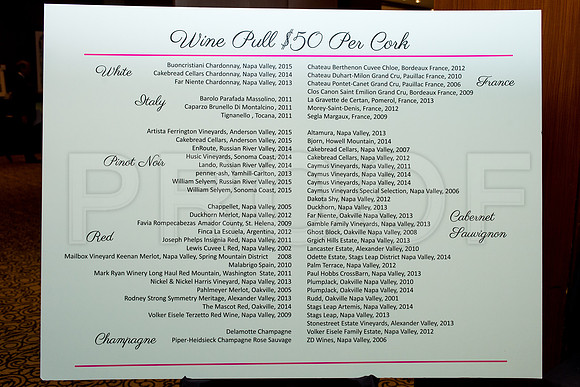 Wine Pull $50 Per Cork
White
Buoncristiani Chardonnay, Napa Valley, 2015
Cakebread Cellars Chardonnay, Napa Valley, 2014
Far Niente Chardonnay, Napa Valley, 2013
Italy
Barolo Parafada Massolino, 2011
Caparzo Brunello Di Montalcino, 2011
Tignanello, Tocana, 2011
Pinot Noir
Artista Ferrington Vineyards, Anderson Valley, 2015
Cakebread Cellars, Anderson Valley, 2015
EnRoute, Russian River Valley, 2014
Husic Vineyards, Sonoma Coast, 2014
Lando, Russian River Valley, 2014
penner-ash, Yamhill-Carlton, 2013
William Selyem, Russian River Valley, 2015
William Selyem, Sonoma Coast, 2015
Red
Chappellet, Napa Valley, 2005
Duckhorn Merlot, Napa Valley, 2012
Favia Rompecabezas Amador County, St. Helena, 2009
Finca La Escuela, Argentina, 2012
Joseph Phelps Insignia Red, Napa Valley, 2011
Lewis Cuvee L Red, Napa Valley, 2002
Mailbox Vineyard Keenan Merlot, Napa Valley, Spring Mountain District 2008
Malabrigo Spain, 2010
Mark Ryan Winery Long Haul Red Mountain, Washington State, 2011
Nickel & Nickel Harris Vineyard, Napa Valley, 2013
Pahlmeyer Merlot, Oakville, 2005
Rodney Strong Symmetry Meritage, Alexander Valley, 2013
The Mascot Red, Oakville, 2014
Volker Eisele Terzetto Red Wine, Napa Valley, 2009
Champagne
Delamotte Champagne
Piper-Heidsieck Champagne Rose Sauvage
France
Chateau Berthenon Cuvee Chloe, Bordeaux France, 2012
Chateau Duhart-Milon Grand Cru, Pauillac France, 2010
Chateau Pontet-Canet Grand Cru, Pauillac France, 2006
Clos Canon Saint Emilion Grand Cru, Bordeaux France, 2009
La Gravette de Certan, Pomerol, France, 2013
Morey-Saint-Denis, France, 2012
Segla Margaux, France, 2009
Cabernet
Sauvignon
Altamura, Napa Valley, 2013
Bjorn, Howell Mountain, 2014
Cakebread, Napa Valley, 2007
Cakebread Cellars, Napa Valley, 2012
Caymus Vineyards, Napa Valley, 2011
Caymus Vineyards, Napa Valley, 2014
Caymus Vineyards, Napa Valley, 2014
Caymus Vineyards Special Selection, Napa Valley, 2006
Dakota Shy, Napa Valley, 2012
Duckhorn, Napa Valley, 2013
Far Niente, Oakville Napa Valley, 2013
Gamble Family Vineyards, Napa Valley, 2013
Ghost Block, Oakville Napa Valley, 2008
Grgich Hills Estate, Napa Valley, 2013
Lancaster Estate, Alexander Valley, 2010
Odette Estate, Stags Leap District Napa Valley, 2014
Palm Terrace, Napa Valley, 2012
Paul Hobbs CrossBarn, Napa Valley, 2013
PlumpJack, Oakville Napa Valley, 2010
PlumpJack, Oakville Napa Valley, 2014
Rudd, Oakville Napa Valley, 2001
Stags Leap Artemis, Napa Valley, 2014
Stags Leap, Napa Valley, 2013
Stonestreet Estate Vineyards, Alexander Valley, 2013
Volker Eisele Family Estate, Napa Valley, 2012
ZD Wines, Napa Valley, 2006
PROOF